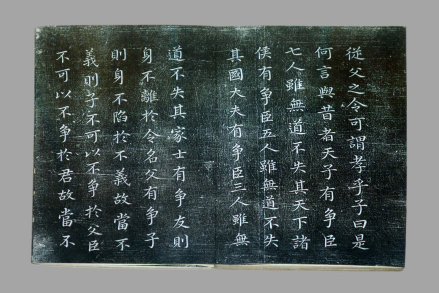 從父之令可謂孝乎子曰是
何言與昔者天子有争臣
七人雖無道不失其天下諸
侯有争臣五人雖無道不失
其國大夫有争臣三人雖無
道不失其家士有争友則
身不離於令名父有争子
則身不陷於不義故當不
義則子不可以不争於父臣
不可以不争於君故當不